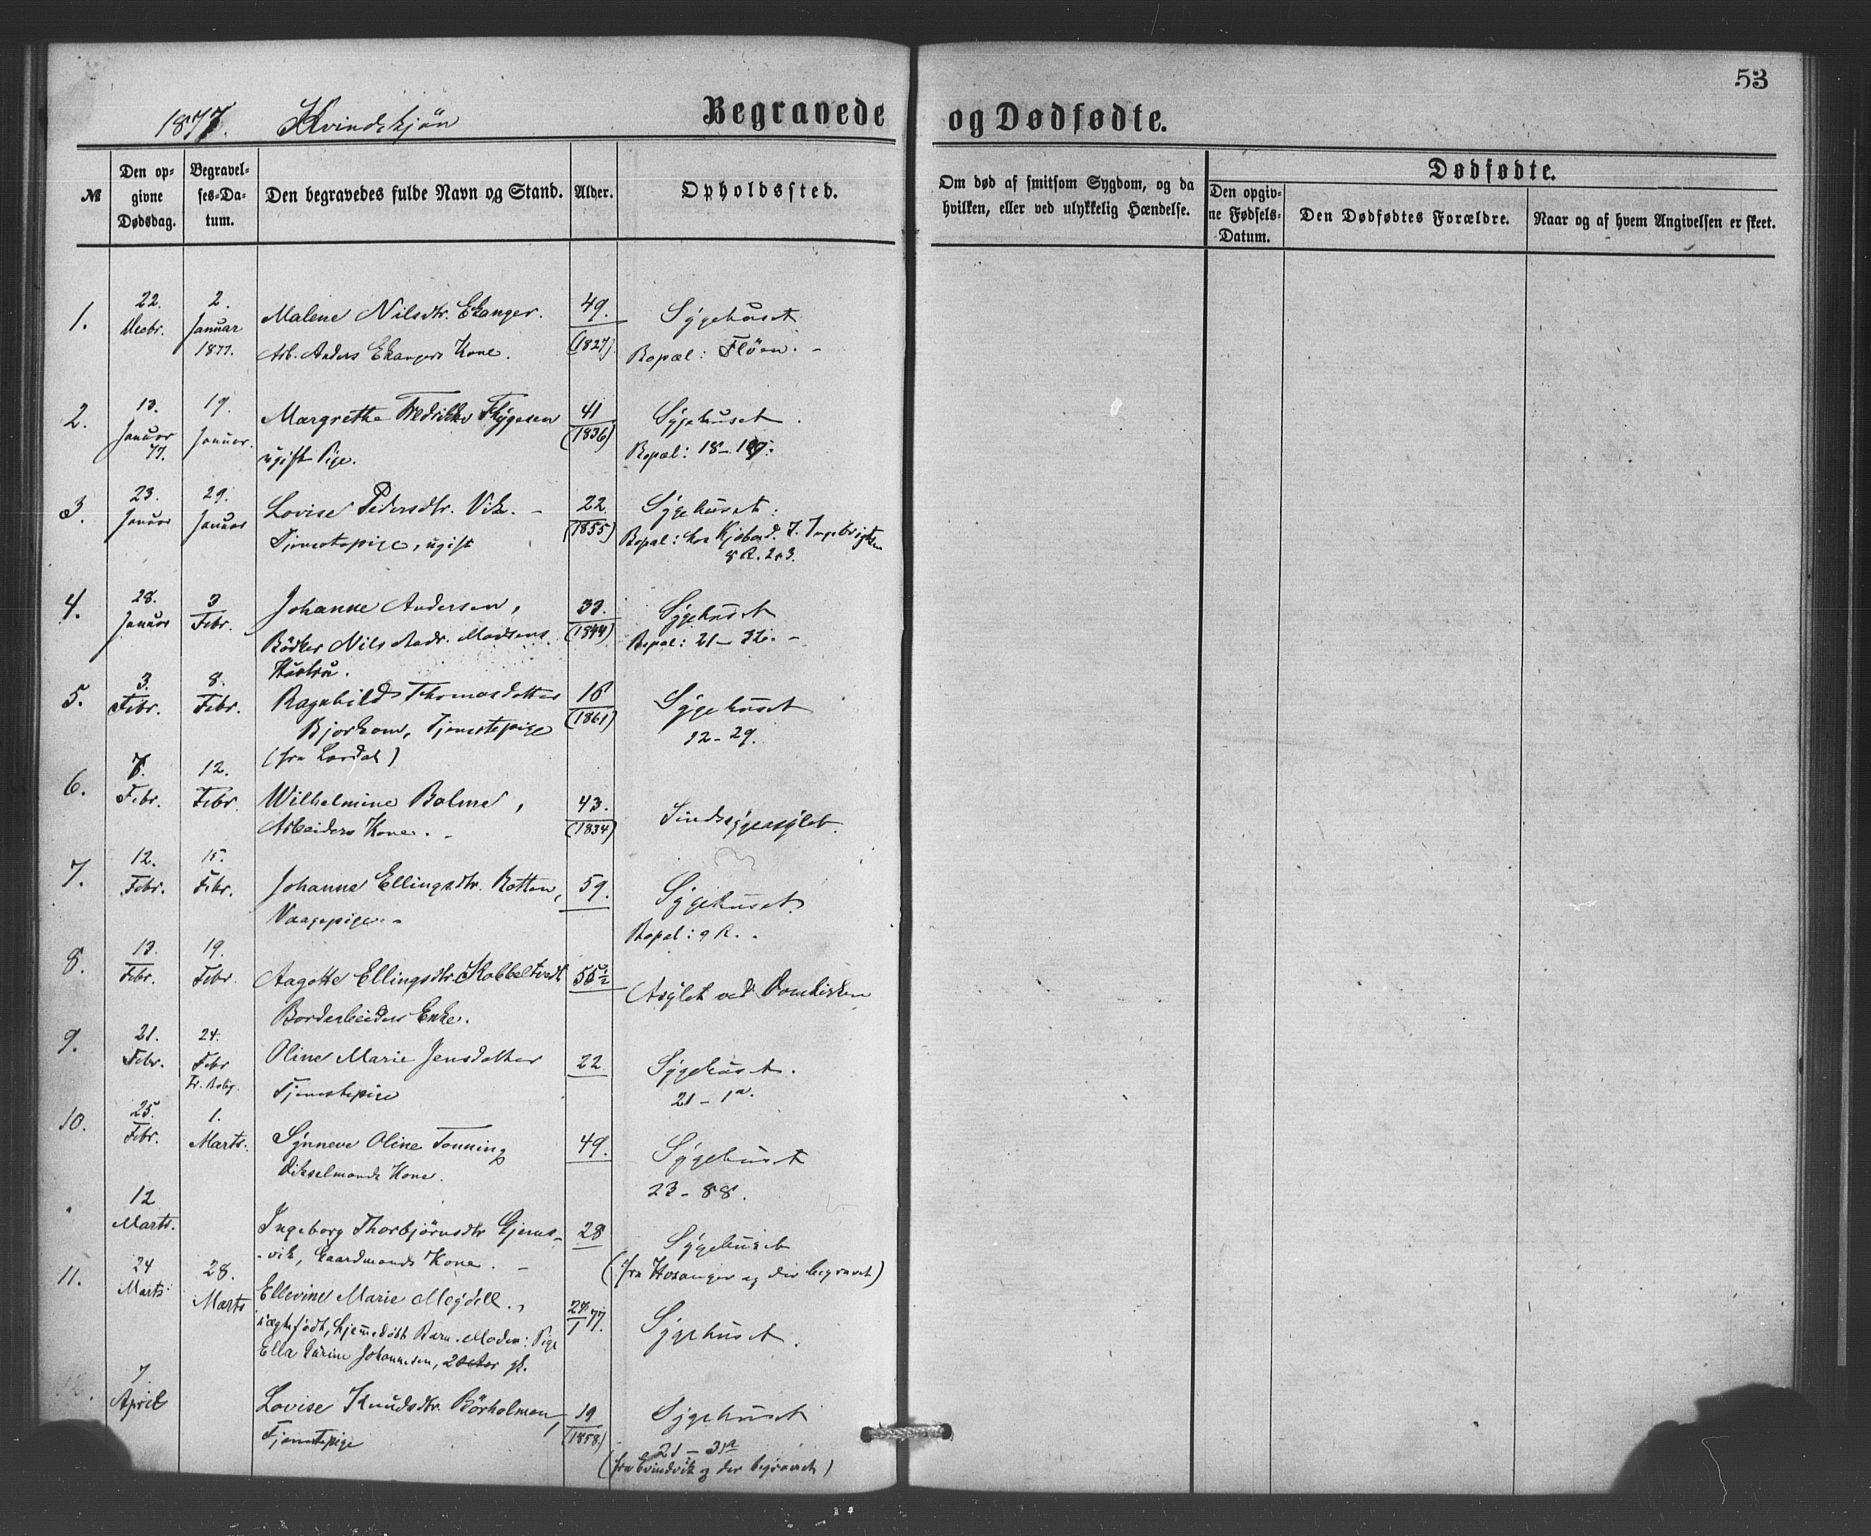 53
1877. Kvindekjön
Begravede og Dødfødte.
№
Den opgivne Dødsdag.
Begravelses-Datum.
Den begravedes fulde Navn og Stand.
Alder.
Opholdssted.
Om død af smitsom Sygdom, og da hvilken, eller ved ulykkelig Hændelse.
Dødfødte.
Den opgivne Fødsels-Datum.
Den Dødfødtes Forældre.
Naar og af hvem Angivelsen er skeet.
1. 22. Decbr. 2. Januar 1877. Malene Nilsdtr. Ekanger. 49. (1827) Sygehuset
Arb. Anders Ekangers Kone. Bopæl: Flöen. -
2. 13. Januar 77. 19. Januar. Margrethe Fredrikke Thygesen 41 (1836) Sygehuset.
ugift Pige. Bopæl: 18-19.
3. 23. Januar 29. Januar Lovise Pedersdtr. Vik. - 22. (1855) Sygehuset:
Tjenestepige, ugift Bopæl: hos Kjöbmd. J. Ingebrigtsen
8 R. 203.
4. 28. Januar 3 Febr. Johanne Andersen, 33. (1844) Sygehuset
Bödker Nils Andr. Madsens Bopæl: 21-32. -
Hustru.
5. 3. Febr. 8. Febr. Ragnhild Thomasdatter 16 (1861) Sygehuset
Bjorkom, Tjenestepige 12-29.
(fra Lærdal)
6. 7. Febr. 12. Febr. Wilhelmine Balme, 43. (1834) Sindssygeasylet.
Arbeiders Kone. -
7. 12. Febr. 15. Febr. Johanne Ellingsdtr. Rotten, 59. Sygehuset.
Vaagepige. - Bopæl: 9 R. -
8. 13. Febr. 19. Febr. Aagotte Ellingsdtr. Kobbeltvedt 55½ Asylet ved Domkirken
Bordarbeiders Enke.
9. 21. Febr. 24. Febr Fr. Bolig. Oline Marie Jensdatter 22. Sygehuset.
Tjenestepige 21-1a.
10. 25. Febr. 1. Marts. Synneve Oline Tonning 49. Sygehuset
Dikselmands Kone. 23-88.
12 Marts. Ingeborg Thorbjörnsdtr Gjems- 28 Sygehuset
-vik, Gaardmands Kone. - (fra Hosanger og der begravet)
11. 24 Marts 28. Marts Ellevine Marie Meydell., 24/1 77. Sygehuset.
uægtefödt, hjemmedöbt Barn. Moder: Pige
Ella Karine Johannesen, 20 Aar gl.
12. 7 April Lovise Knudsdtr. Börholmen, 19 (1858) Sygehuset
Tjenestepige 21-31a
(fra Evindvik og der begravet)